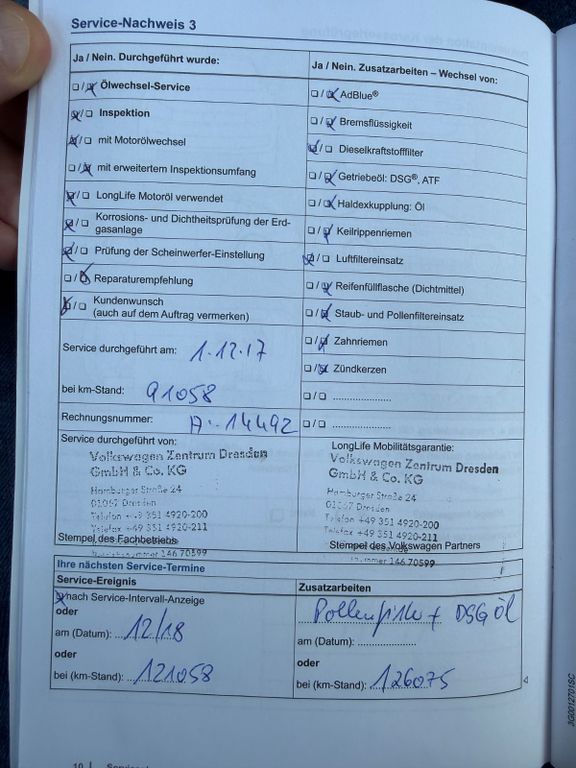 Service-Nachweis 3
Ja / Nein. Durchgeführt wurde:
☐ / ☒ Ölwechsel-Service
☒ / ☐ Inspektion
☒ / ☐ mit Motorölwechsel
☐ / ☒ mit erweitertem Inspektionsumfang
☒ / ☐ LongLife Motoröl verwendet
☒ / ☐ Korrosions- und Dichtheitsprüfung der Erd-
gasanlage
☒ / ☐ Prüfung der Scheinwerfer-Einstellung
☐ / ☒ Reparaturempfehlung
☒ / ☐ Kundenwunsch
(auch auf dem Auftrag vermerken)
Service durchgeführt am: 1.12.17
bei km-Stand: 91058
Rechnungsnummer: A.-14492
Ja / Nein. Zusatzarbeiten – Wechsel von:
☐ / ☒ AdBlue®
☐ / ☒ Bremsflüssigkeit
☒ / ☐ Dieselkraftstofffilter
☐ / ☒ Getriebeöl: DSG®, ATF
☐ / ☒ Haldexkupplung: Öl
☐ / ☒ Keilrippenriemen
☒ / ☐ Luftfiltereinsatz
☐ / ☒ Reifenfüllflasche (Dichtmittel)
☐ / ☒ Staub- und Pollenfiltereinsatz
☐ / ☒ Zahnriemen
☐ / ☒ Zündkerzen
☐ / ☐ ....................
☐ / ☐ ....................
Service durchgeführt von:
Volkswagen Zentrum Dresden
GmbH & Co. KG
Hamburger Straße 24
01067 Dresden
Telefon +49 351 4920-200
Telefax +49 351 4920-211
Stempel des Fachbetriebs
146 70599
LongLife Mobilitätsgarantie:
Volkswagen Zentrum Dresden
GmbH & Co. KG
Hamburger Straße 24
01067 Dresden
Telefon +49 351 4920-200
Telefax +49 351 4920-211
Stempel des Volkswagen Partners
146 70599
Ihre nächsten Service-Termine
Service-Ereignis
☒ nach Service-Intervall-Anzeige
oder
am (Datum): 12/18
oder
bei (km-Stand): 121058
Zusatzarbeiten
+ DSG Öl
am (Datum): ....................
oder
bei (km-Stand): 126075
JG0012701SC
10